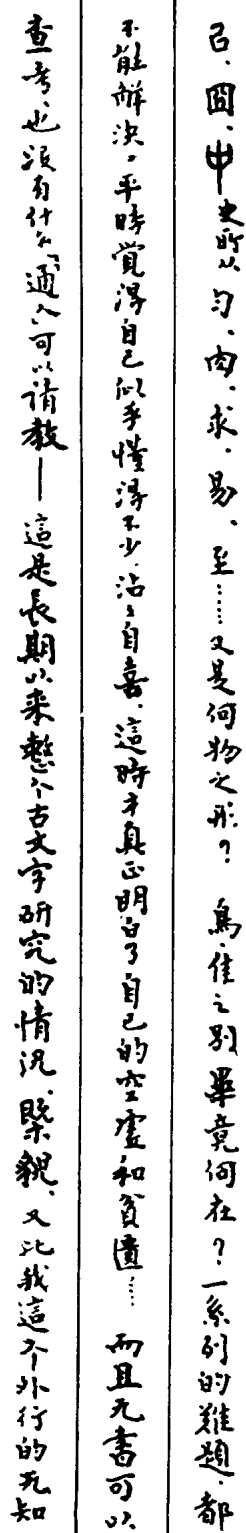 呂、囧、中史所从勹、肉、求、易、至……又是何物之形？鳥、隹之別畢竟何在？一系列的難題，都
不能解決。平時覺得自己似乎懂得不少，沾沾自喜，這時才真正明白了自己的空虛和貧匱……而且无書可以
查考，也沒有什么「通人」可以請教——這是長期以来整个古文字研究的情況、槩貌，又比我這个外行的无知